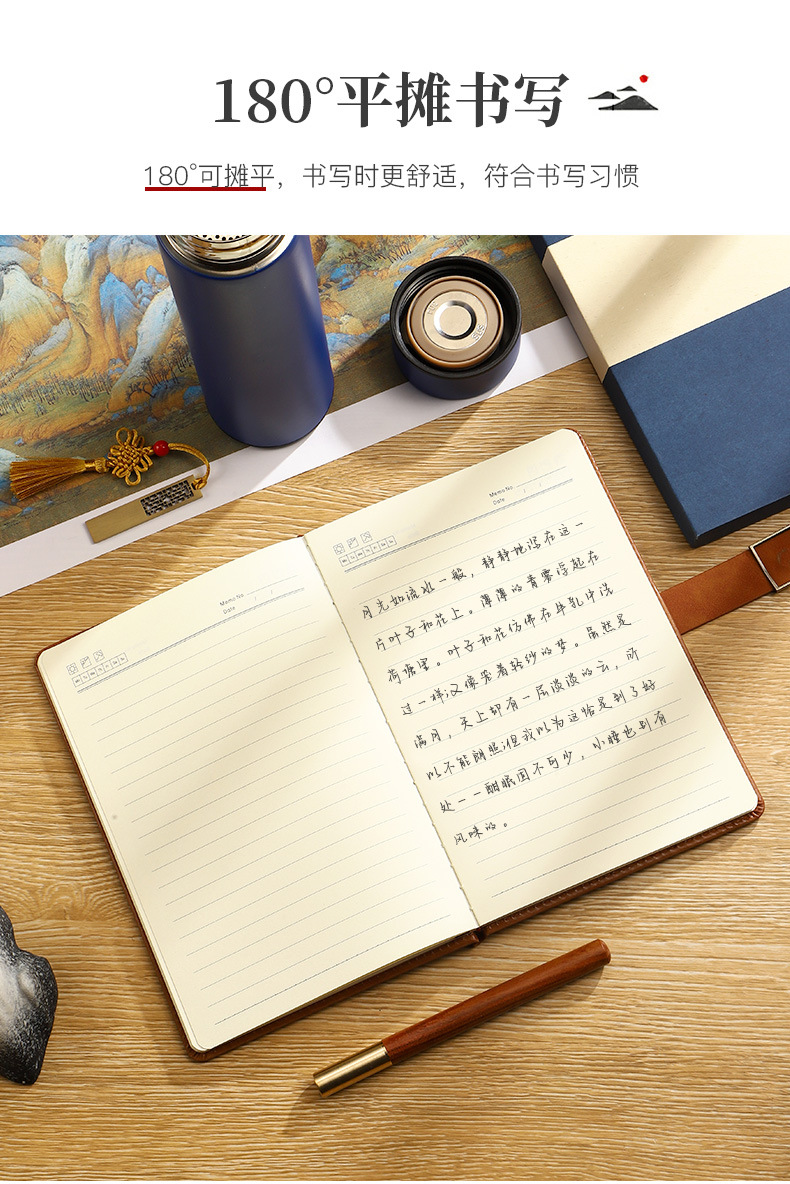 180°平摊书写
180°可摊平，书写时更舒适，符合书写习惯
SUS
Memo No.
Date / /
Memo No.
Date / /
月光如流水一般，静静地泻在这一
片叶子和花上。薄薄的青雾浮起在
荷塘里。叶子和花仿佛在牛乳中洗
过一样；又像笼着轻纱的梦。虽然是
满月，天上却有一层淡淡的云，所
以不能朗照；但我以为这恰是到了好
处——酣眠固不可少，小睡也别有
风味的。